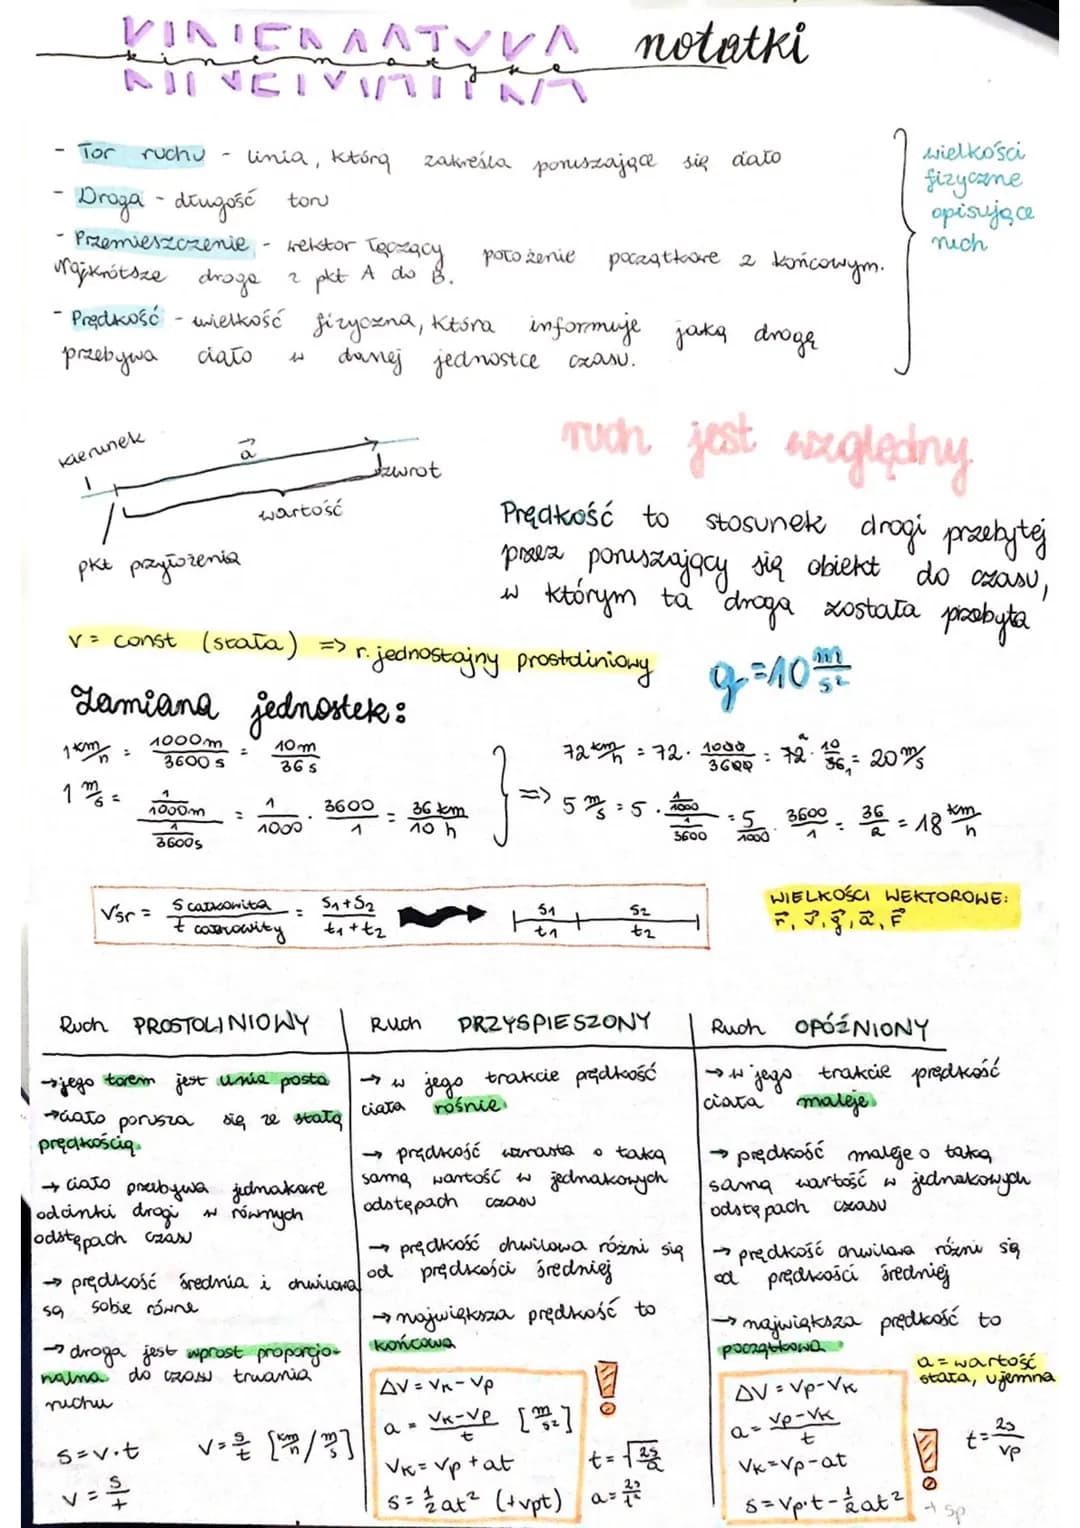 KINEMATYKA notatki
kinematyka
- Tor ruchu - linia, którą zakreśla poruszające się ciało
- Droga - długość toru
- Przemieszczenie - wektor łączący położenie początkowe z końcowym.
Najkrótsze droge z pkt A do B.
- Prędkość - wielkość fizyczna, która informuje jaką drogę
przebywa ciało w danej jednostce czasu.
wielkości
fizyczne
opisujące
ruch
kierunek
a⃗
zwrot
wartość
pkt przyłożenia
ruch jest względny
Prędkość to stosunek drogi przebytej
przez poruszający się obiekt do czasu,
w którym ta droga została przebyta
v = const (stała) => r. jednostajny prostoliniowy
g = 10 m/s²
Zamiana jednostek:
1 km/h = 1000m/3600s = 10m/36s
1 m/s = (1/1000 m)/(1/3600s) = 1/1000 · 3600/1 = 36 km/10 h
=>
72 km/h = 72 · 1000/3600 = 72 · 10/36 = 20 m/s
5 m/s = 5 · (1/1000)/(1/3600) = 5/1000 · 3600/1 = 36/2 = 18 km/h
Vśr = s całkowita/t całkowity = s1+s2/t1+t2
s1 s2
t1 t2
WIELKOŚCI WEKTOROWE:
r⃗, v⃗, g⃗, a⃗, F⃗
Ruch PROSTOLINIOWY
→ jego torem jest linia posta
→ ciało porusza się ze stałą
prędkością
→ ciało przebywa jednakowe
odcinki drogi w równych
odstępach czasu
→ prędkość średnia i chwilowa
są sobie równe
→ droga jest wprost proporcjo-
nalna do czasu trwania
ruchu
s = v·t v = s/t [km/h / m/s]
v = s/t
Ruch PRZYSPIESZONY
→ w jego trakcie prędkość
ciała rośnie
→ prędkość wzrasta o taką
samą wartość w jednakowych
odstępach czasu
→ prędkość chwilowa różni się
od prędkości średniej
→ największa prędkość to
końcowa
ΔV = Vk - Vp
a = Vk-Vp/t [m/s²]
Vk = Vp + at
s = 1/2 at² (+vpt)
t = √2s/a
a = 2s/t²
Ruch OPÓŹNIONY
→ w jego trakcie prędkość
ciała maleje
→ prędkość maleje o taką
samą wartość w jednakowych
odstępach czasu
→ prędkość chwilowa różni się
od prędkości średniej
→ największa prędkość to
początkowa
a = wartość
stała, ujemna
ΔV = Vp - Vk
a = Vp-Vk/t
Vk = Vp - at
s = Vp·t - 1/2 at²
t = 2s/Vp
+ sp